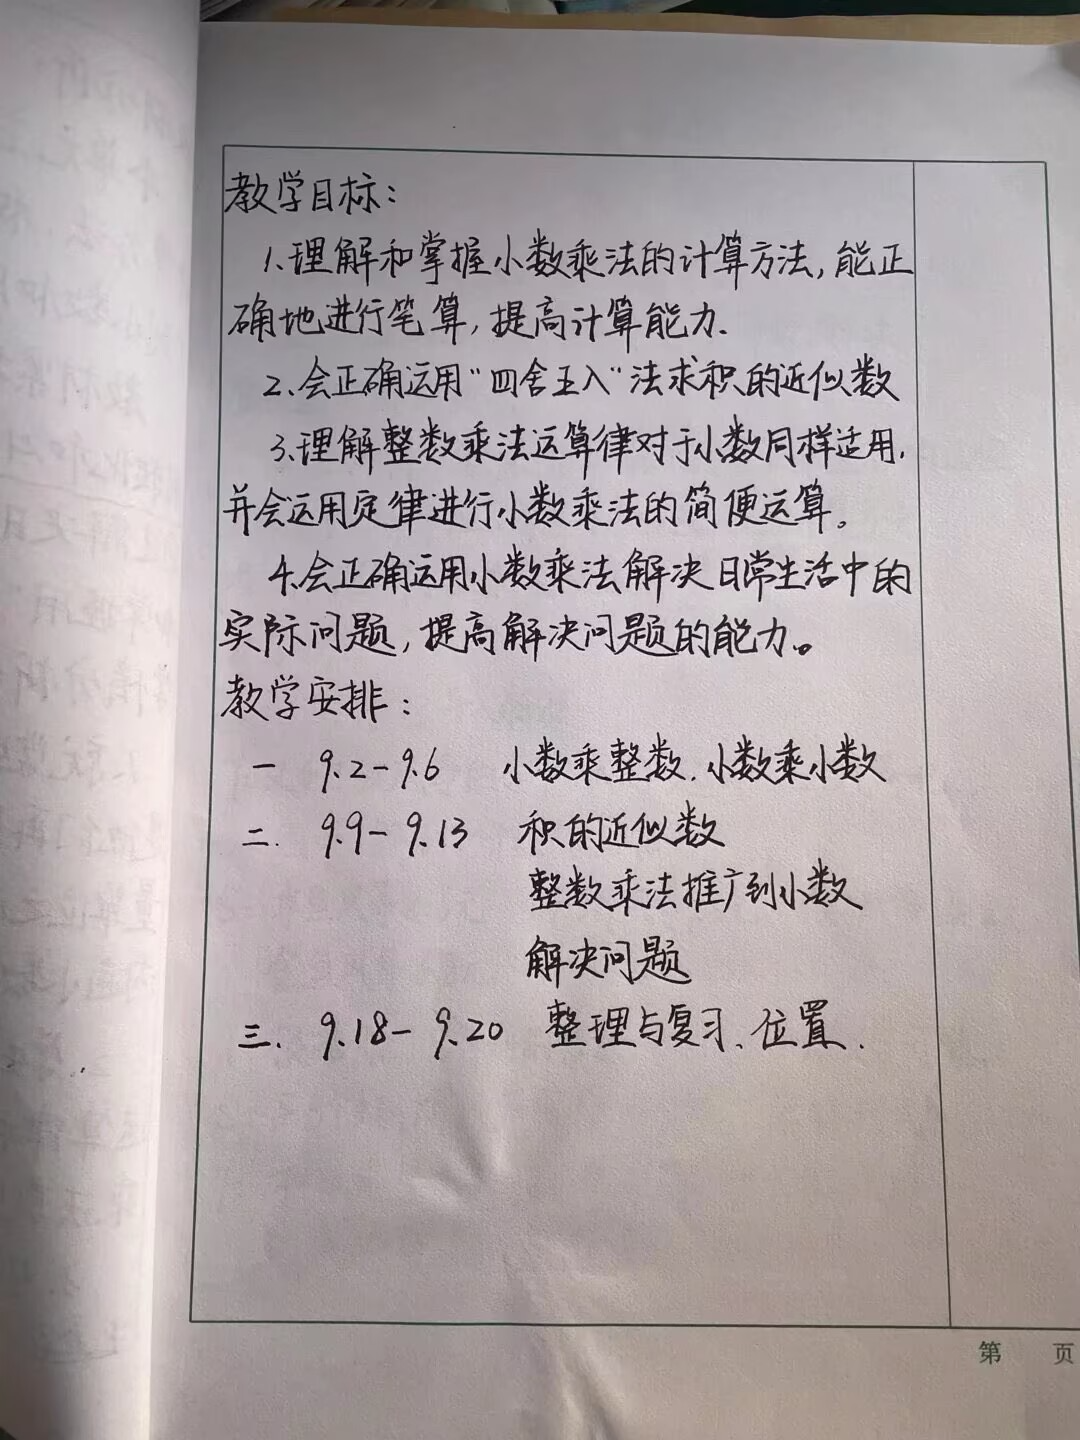 教学目标：
1.理解和掌握小数乘法的计算方法，能正
确地进行笔算，提高计算能力.
2.会正确运用“四舍五入”法求积的近似数
3.理解整数乘法运算律对于小数同样适用，
并会运用定律进行小数乘法的简便运算。
4.会正确运用小数乘法解决日常生活中的
实际问题，提高解决问题的能力。
教学安排：
一 9.2-9.6 小数乘整数.小数乘小数
二. 9.9-9.13 积的近似数
整数乘法推广到小数
解决问题
三. 9.18-9.20 整理与复习、位置.
第 页